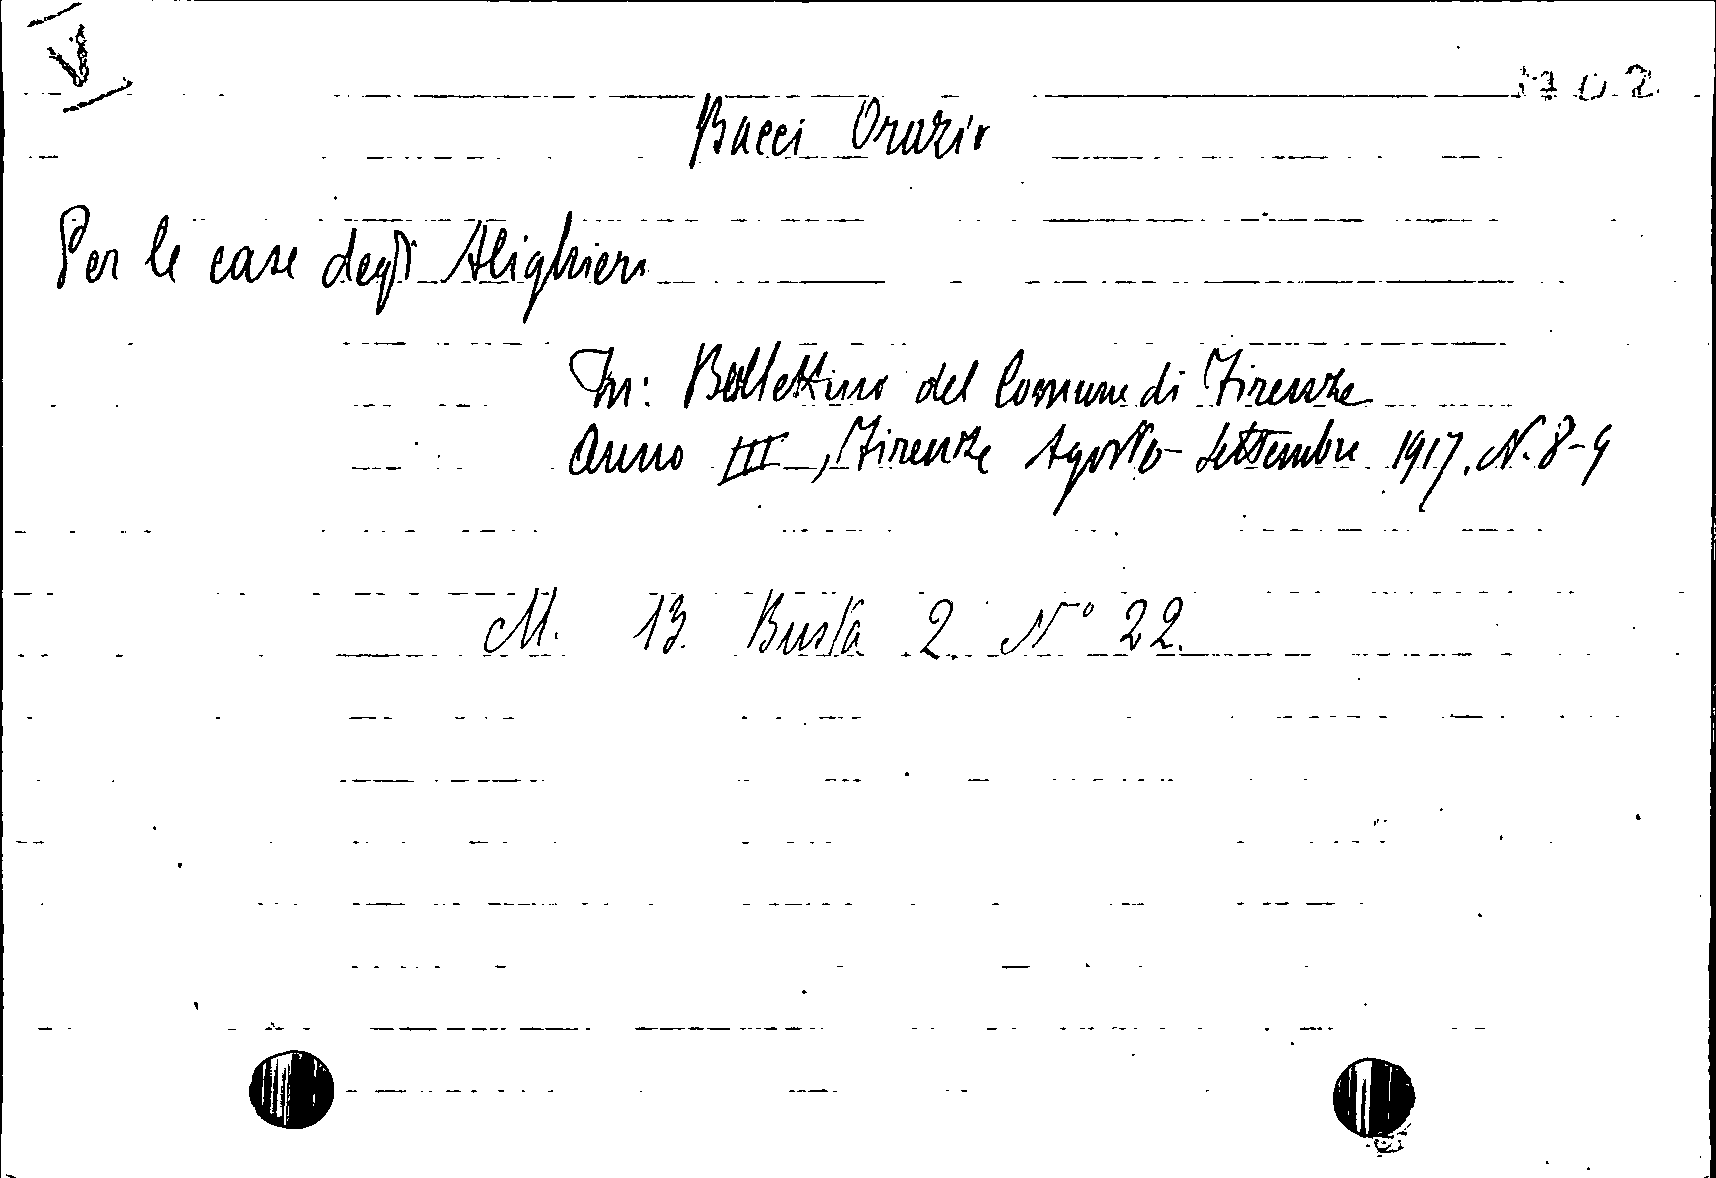 V
Bacci Orazio
Per le case degli Alighieri
In: Bollettino del Comune di Firenze
Anno III, Firenze Agosto-Settembre 1917. N. 8-9
M. 13. Busta 2. N° 22.